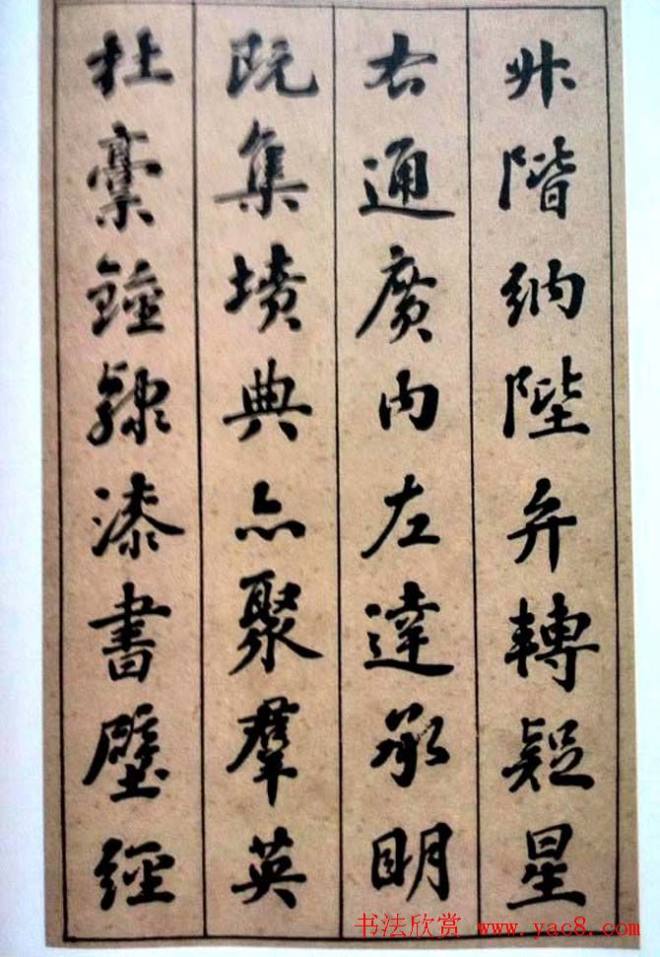 升階納陛弁轉疑星
右通廣內左達承明
既集墳典亦聚羣英
杜稾鍾隸漆書壁經
书法欣赏 www.yac8.com